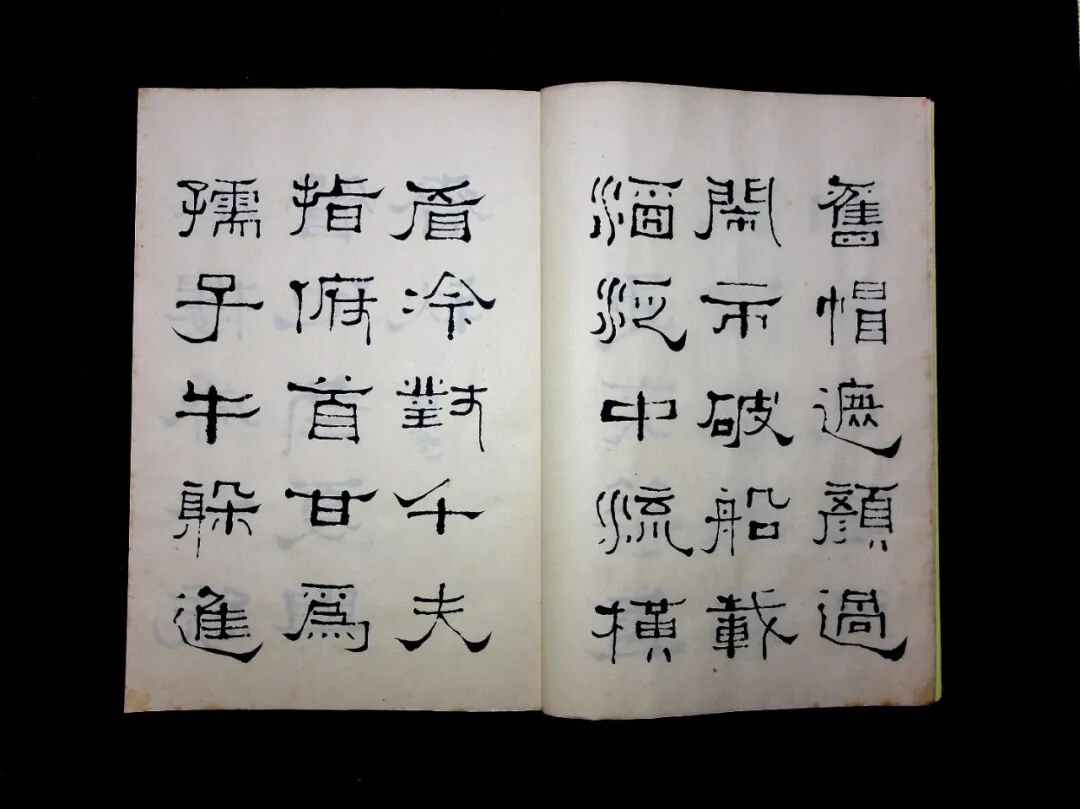 舊帽遮顏過
鬧市破船載
酒泛中流橫
眉冷對千夫
指俯首甘爲
孺子牛躲進